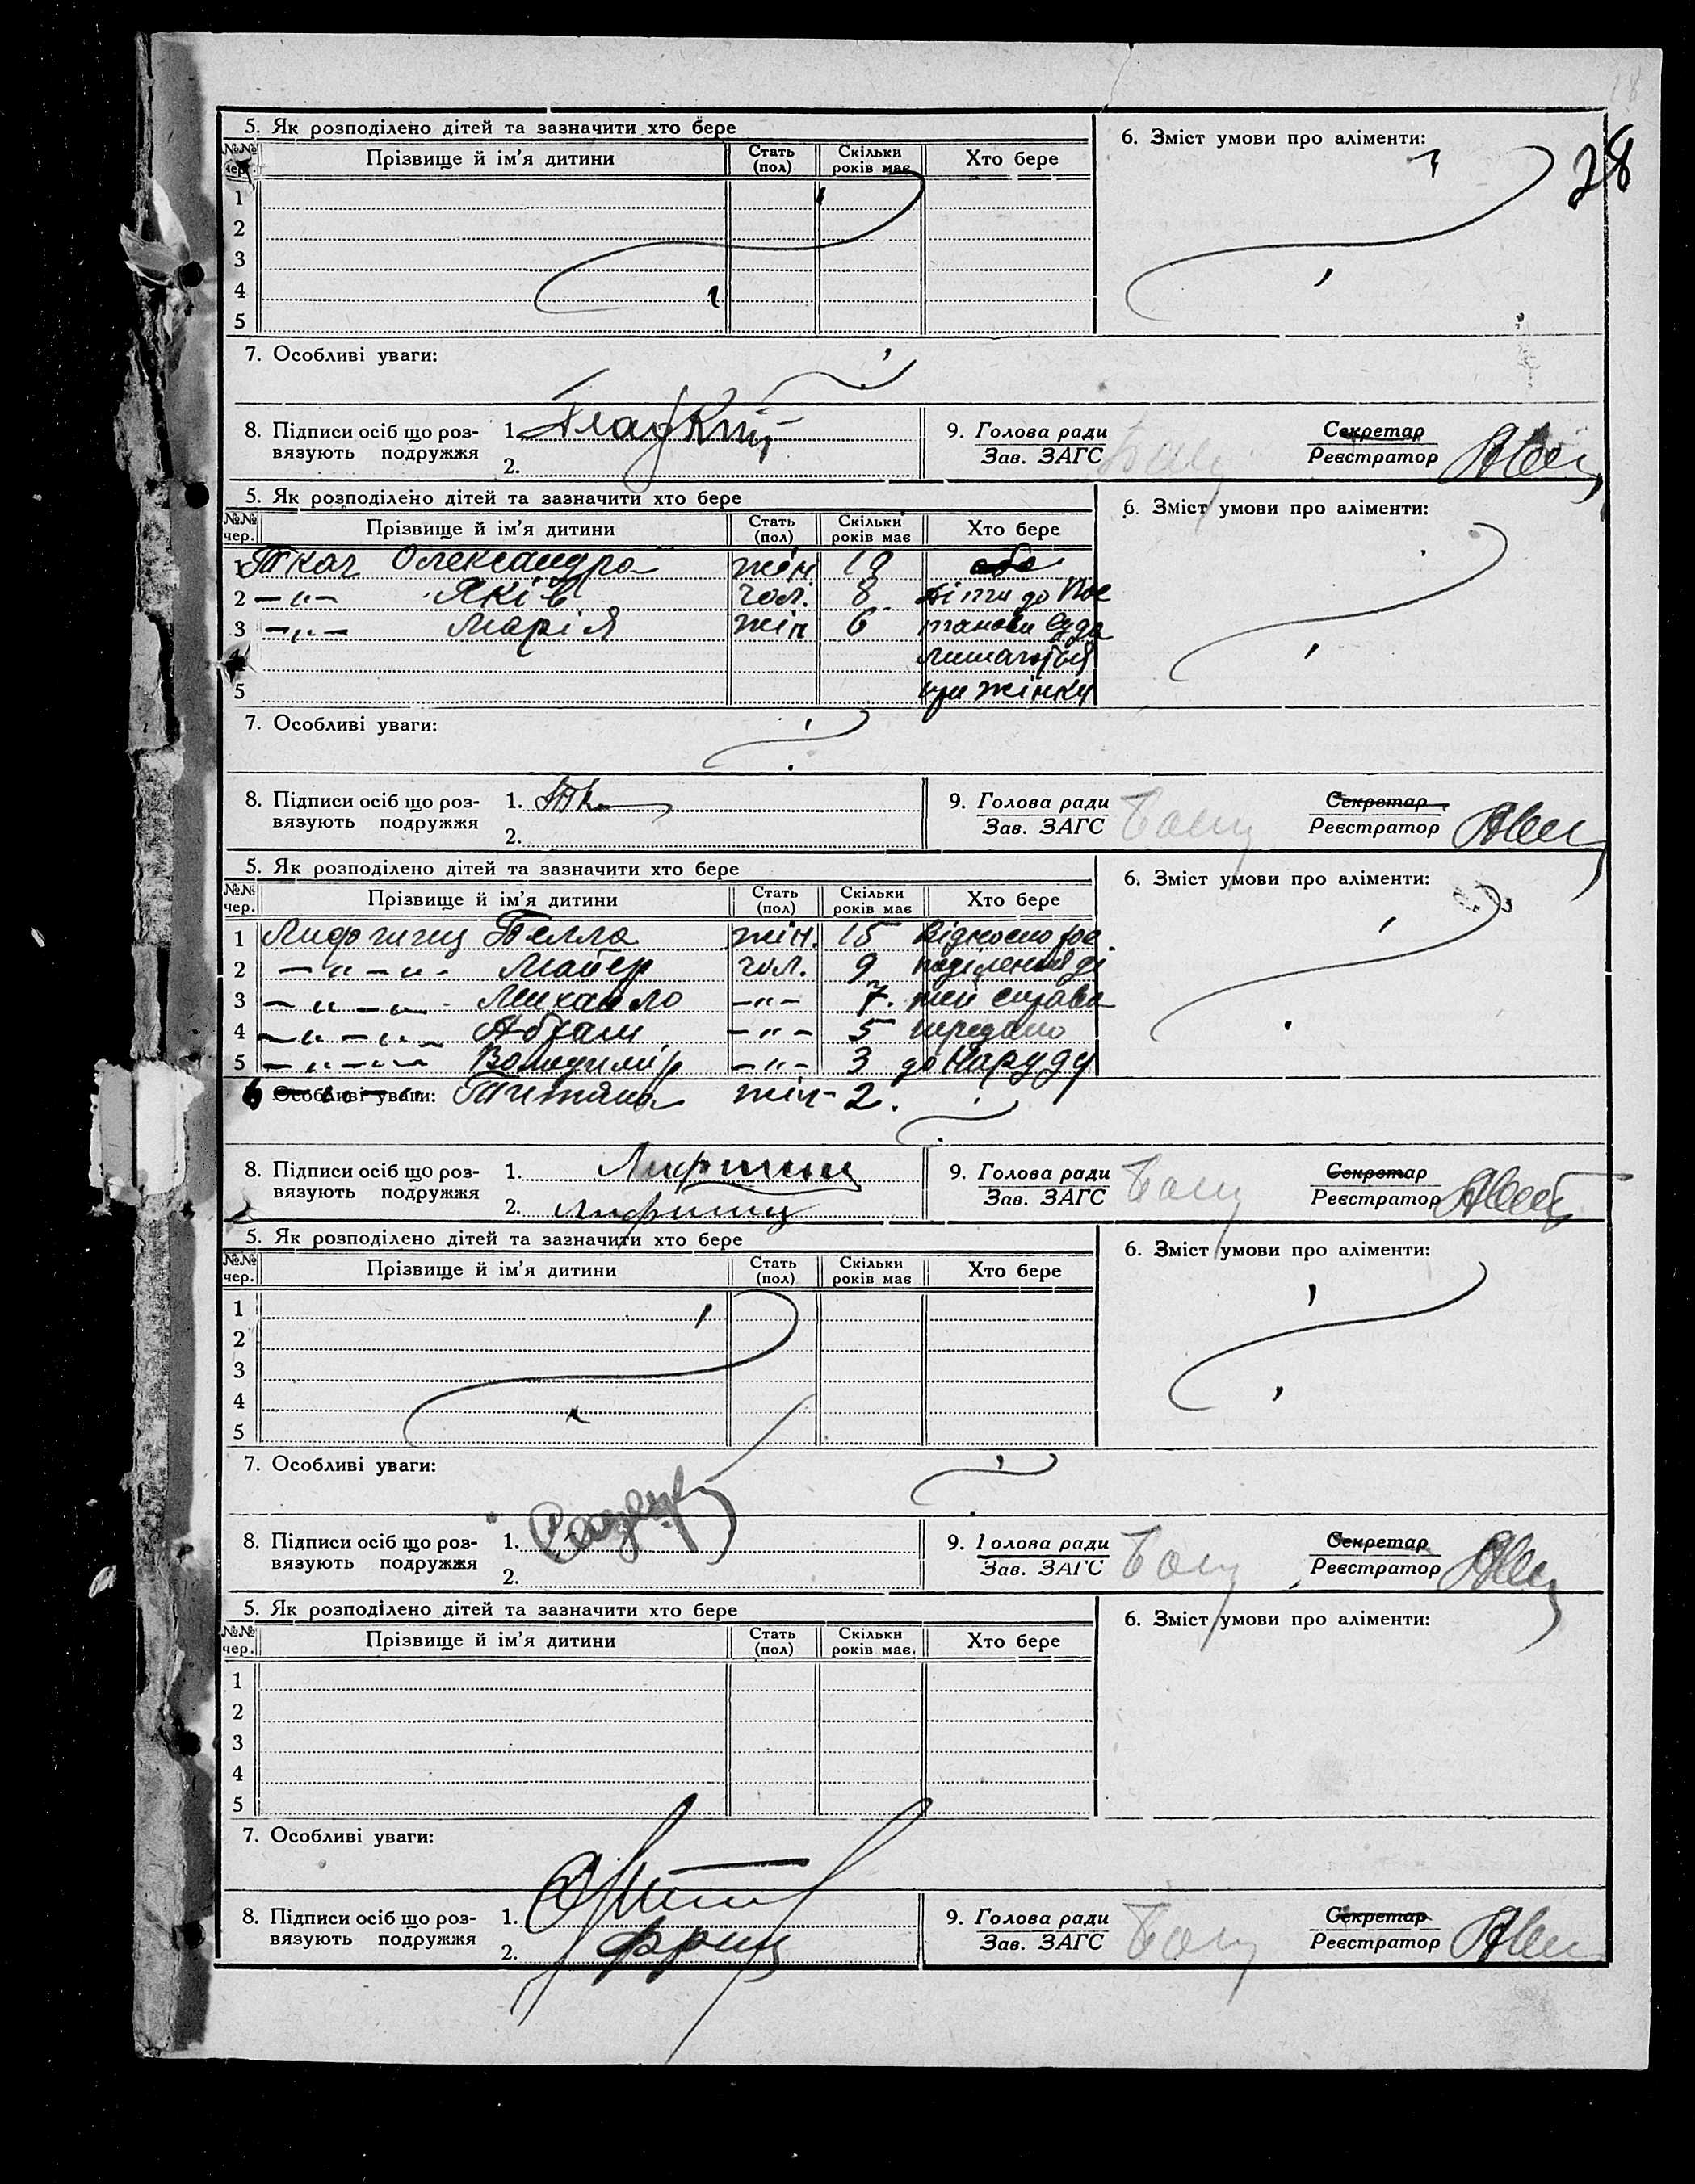 28
5. Як розподілено дітей та зазначити хто бере
6. Зміст умови про аліменти:
№№ чер. Прізвище й ім'я дитини Стать (пол) Скільки років має Хто бере
1
2
3
4
5
7. Особливі уваги:
8. Підписи осіб що роз-
вязують подружжя
1. Гладкий
2.
9. Голова ради
Зав. ЗАГС
Секретар
Реєстратор
5. Як розподілено дітей та зазначити хто бере
6. Зміст умови про аліменти:
№№ чер. Прізвище й ім'я дитини Стать (пол) Скільки років має Хто бере
1 Ткач Олександра жін 19
2 -"- Яків чол. 8 Діти до пос
3 -"- Марія жін 6 танови суда
4 лишаються
5 при жінки
7. Особливі уваги:
8. Підписи осіб що роз-
вязують подружжя
1. Тк
2.
9. Голова ради
Зав. ЗАГС
Секретар
Реєстратор
5. Як розподілено дітей та зазначити хто бере
6. Зміст умови про аліменти:
№№ чер. Прізвище й ім'я дитини Стать (пол) Скільки років має Хто бере
1 Лифшиц Белла жін. 15 Відносно роз
2 -"-"- Майер чол. 9 поділення ді
3 -"-"- Михайло -"- 7. тей справа
4 -"-"- Абрам -"- 5 передано
5 -"-"- Володимір -"- 3 до Нарсуду
6 Особливі уваги: Титяна жін- 2.
8. Підписи осіб що роз-
вязують подружжя
1. Лифшиц
2. Лифшиц
9. Голова ради
Зав. ЗАГС
Секретар
Реєстратор
5. Як розподілено дітей та зазначити хто бере
6. Зміст умови про аліменти:
№№ чер. Прізвище й ім'я дитини Стать (пол) Скільки років має Хто бере
1
2
3
4
5
7. Особливі уваги:
8. Підписи осіб що роз-
вязують подружжя
1.
2.
9. Голова ради
Зав. ЗАГС
Секретар
Реєстратор
5. Як розподілено дітей та зазначити хто бере
6. Зміст умови про аліменти:
№№ чер. Прізвище й ім'я дитини Стать (пол) Скільки років має. Хто бере
1
2
3
4
5
7. Особливі уваги:
8. Підписи осіб що роз-
вязують подружжя
1.
2. Фриц
9. Голова ради
Зав. ЗАГС
Секретар
Реєстратор